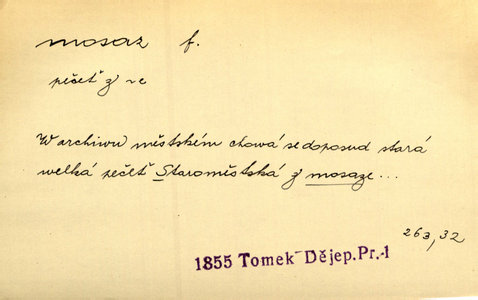 mosaz f.
pečeť z ~e
W archivu městském chová se doposud stará
welká pečeť Staroměstská z mosaze...
263,32
1855 Tomek Dějep.Pr.1